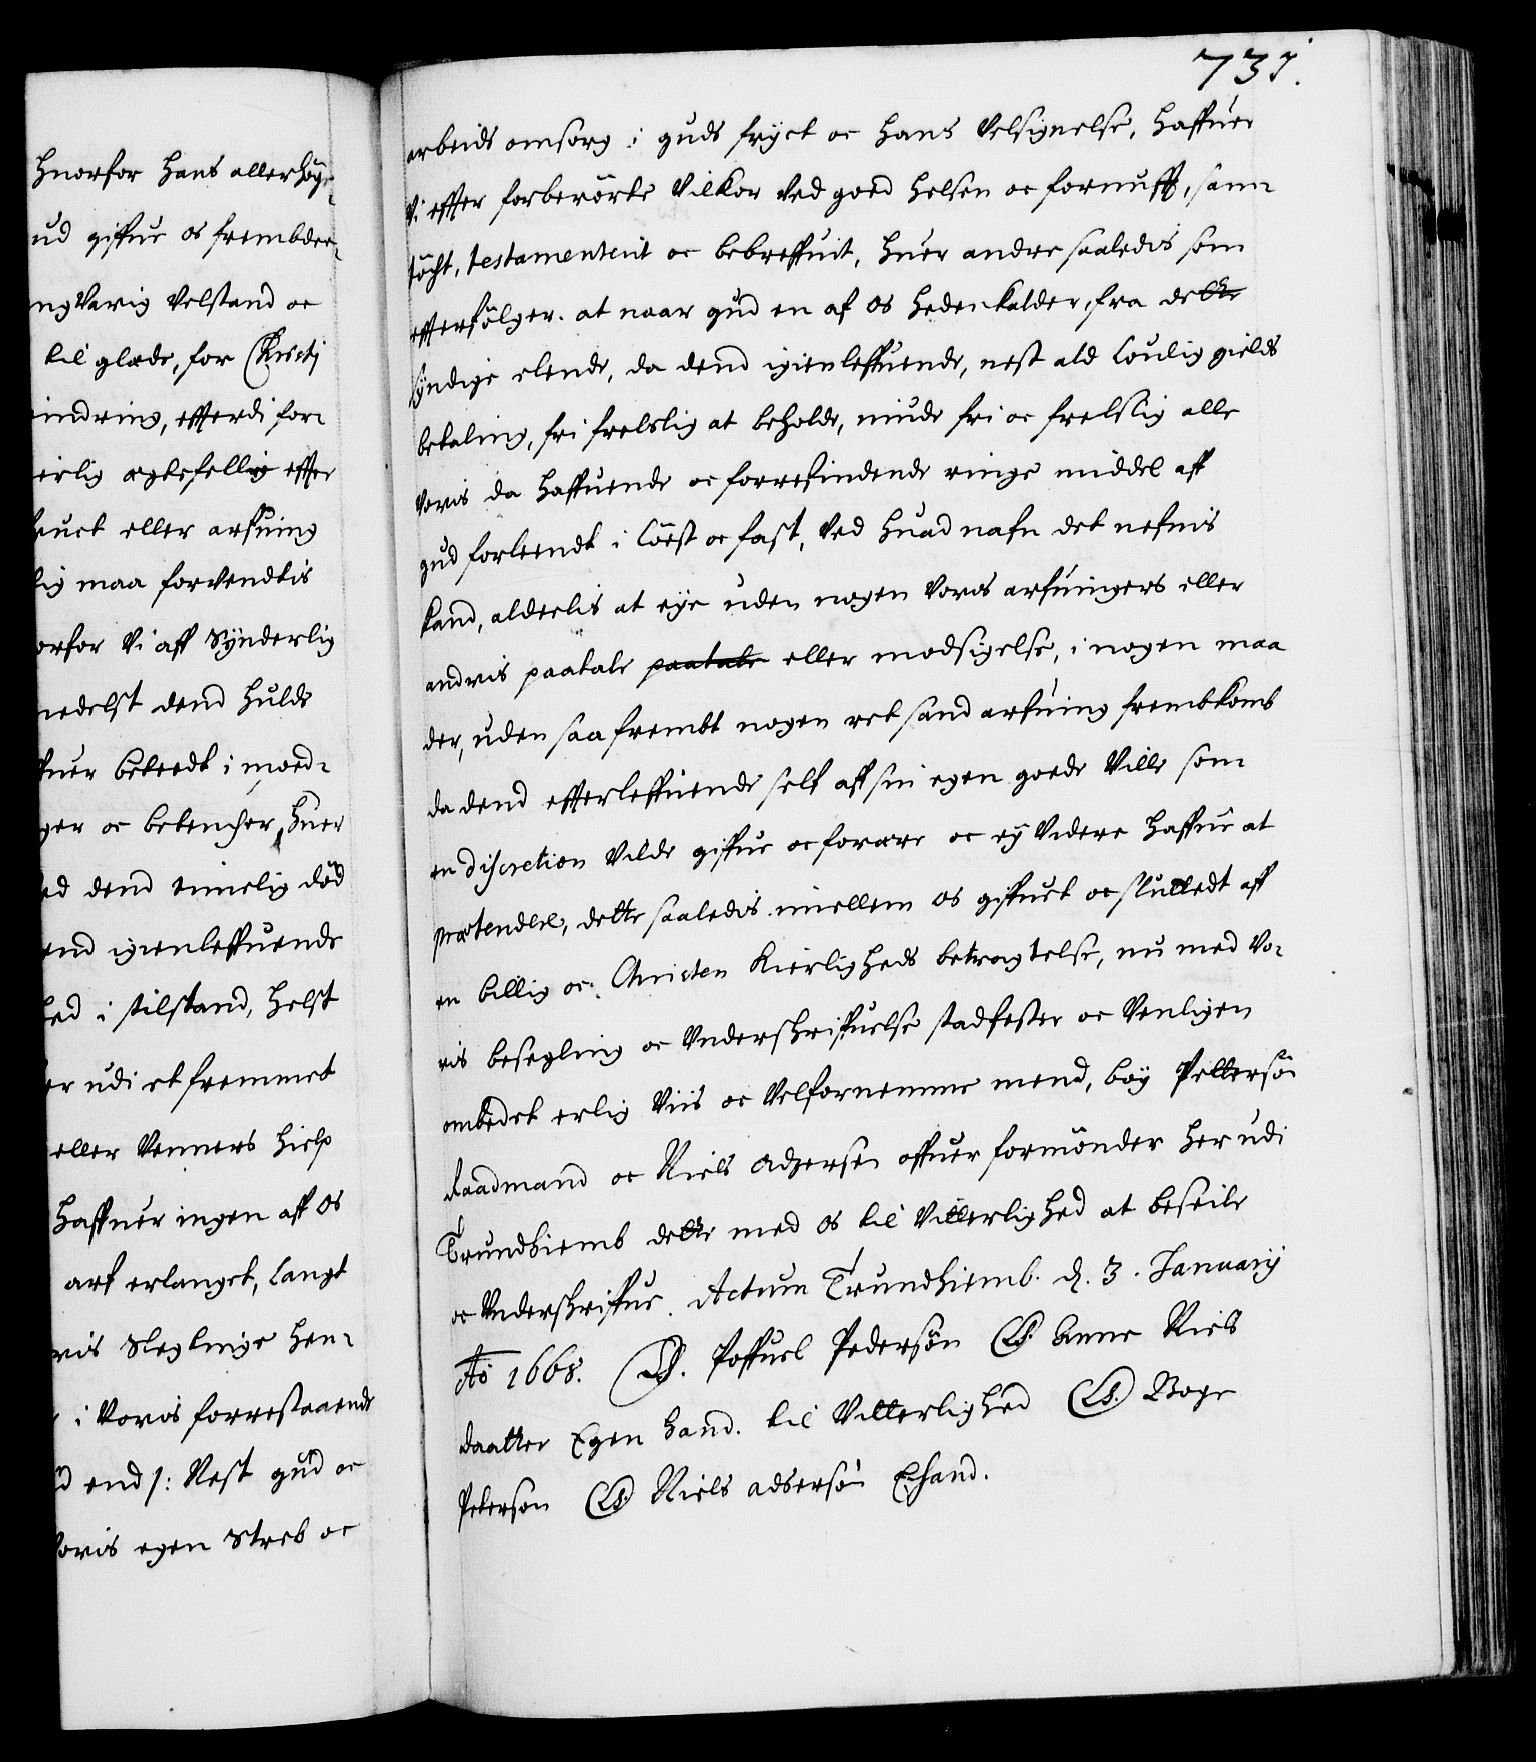 hvorfor hans allerhøye-
ud giffue os frembdee-
ngvarig velstand oc
til glæde, for Christj
indring, efterdi for-
eirlig egtefellig effter
fruct eller arfuing
lig maa forvendtis
orfor Vi aff Synderlig
medelst dend hulde
ffuer beteedt i moed-
ger oc betencher, huer
ed dend timelig død
end igienleffuende
hed i tilstand, helst
er udi et fremmet
eller Venners hielp
haffuer ingen aff os
arf erlanget, langt
vis Slegtninge hen-
i Voris forrestaaende
end /: Nest gud oc
Voris egen Streb oc
731.
arbeids omsorg i guds fryct oc hans Velsignelse, haffuer
Vi effter forberörte Vilkor Ved goed helsen oc fornufft, sam-
töcht, testamenterit oc bebreffuit, huer andre saaledis som
effterfölger. at naar gud en af os hedenkalder, fra dette
syndige elende, da dend igienleffuende, nest ald loulig gields
betaling, fri frelslig at beholde, niude fri oc frelslig alle
Voris da haffuende oc forrefindende ringe middel aff
gud forleendt i löest oc fast, Ved huad nafn det nefnis
kand, alderlis at eye uden nogen Voros arfuingers eller
andris paatale paatale eller modsigelse, i nogen maa
der, uden saa frembt nogen ret sand arfuing frembkomb
da dend effterleffuende self aff sin egen goede Ville som
en discretion Vilde giffue oc forære oc ey Videre haffue at
prætendere, dette saaledis imellem os giffuet oc sluttedt aff
en billig oc Christen Kierligheds betragtelse, nu med Vo-
ris besegling oc Vnderschriffuelse stadfester oc Venligen
ombedet erlig Viis oc Velfornemme mend, boy Pettersön
Raadmand oc Niels Adzersen offuer formönder her udi
Trundhiemb dette med os til Vitterlighed at beseile
oc Vnderschriffue. Actum Trundhiemb. d. 3. Januarij
Ao 1668. LS. Poffuel Pedersön LS. Anne Niels
daatter Egen hand. til Vitterlighed LS. Boye
Peterson LS. Niels adsersön Ehand.